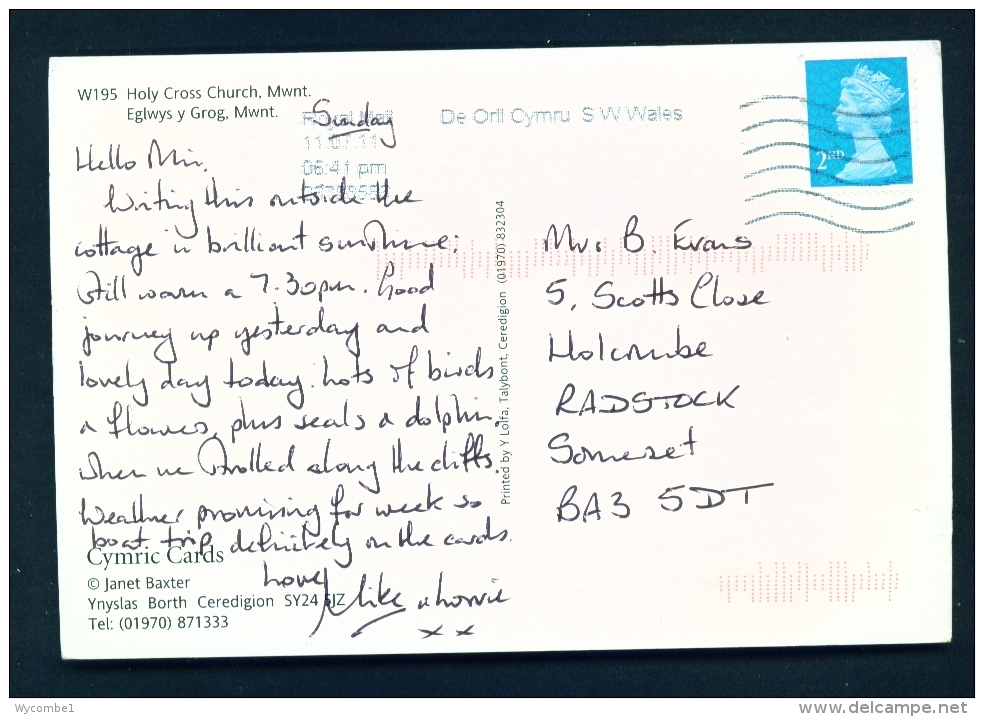 W195 Holy Cross Church, Mwnt.
Eglwys y Grog, Mwnt.
Sunday
Royal Mail
11.07.11
06:41 pm
De Orll Cymru S W Wales
2ND
Hello Mr.
Writing this outside the
cottage in brilliant sunshine:
still warm a 7.30pm. Good
journey up yesterday and
lovely day today. Lots of birds
a flowers, plus seals a dolphin,
when we strolled along the cliffs.
Weather promising for week so
boat trip definitely on the cards.
Love
Mike a
x x
Cymric Cards
© Janet Baxter
Ynyslas Borth Ceredigion SY24 5JZ
Tel: (01970) 871333
Printed by Y Lolfa, Talybont, Ceredigion (01970) 832304
Mr. B. Evans
5, Scotts Close
Holcombe
RADSTOCK
Somerset
BA3 5DT
Wycombe1
www.delcampe.net